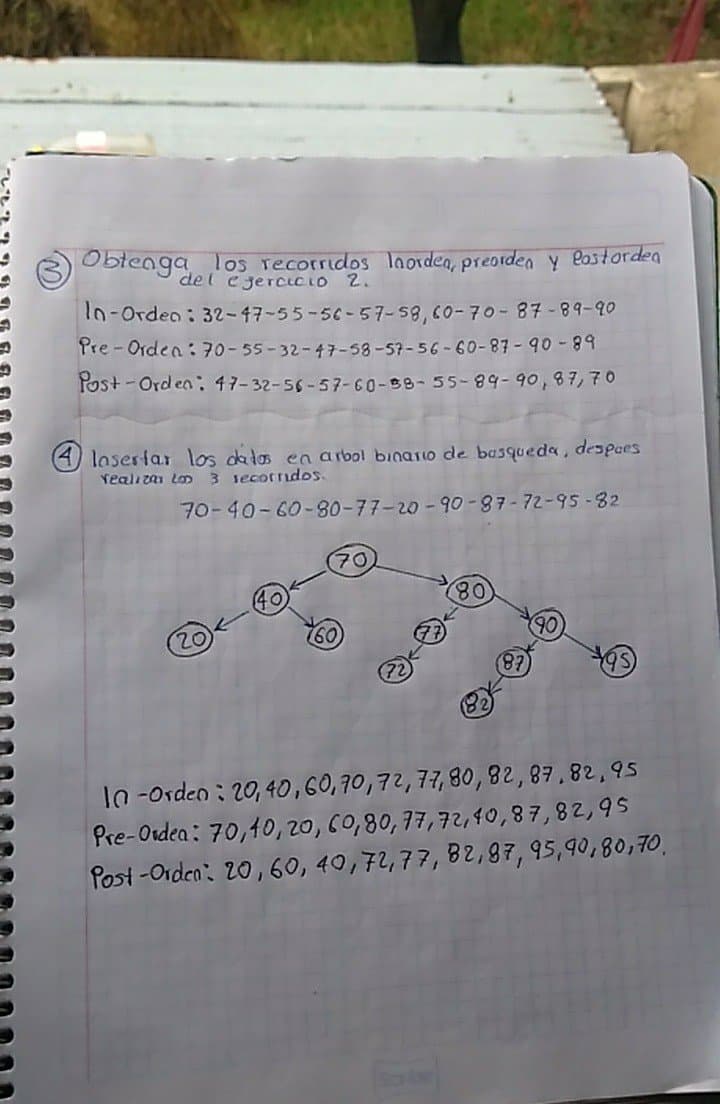 ③ Obtenga los recorridos Inorden, preorden y Postorden
del ejercicio 2.
In-Orden: 32-47-55-56-57-58, 60-70-87-89-90
Pre-Orden: 70-55-32-47-58-57-56-60-87-90-89
Post-Orden: 47-32-56-57-60-58-55-89-90, 87, 70
④ Insertar los datos en arbol binario de busqueda, despues
realizar los 3 recorridos.
70-40-60-80-77-20-90-87-72-95-82
70
40 80
20 60 77 90
72 87 95
82
In-Orden: 20, 40, 60, 70, 72, 77, 80, 82, 87, 82, 95
Pre-Orden: 70, 40, 20, 60, 80, 77, 72, 90, 87, 82, 95
Post-Orden: 20, 60, 40, 72, 77, 82, 87, 95, 90, 80, 70.